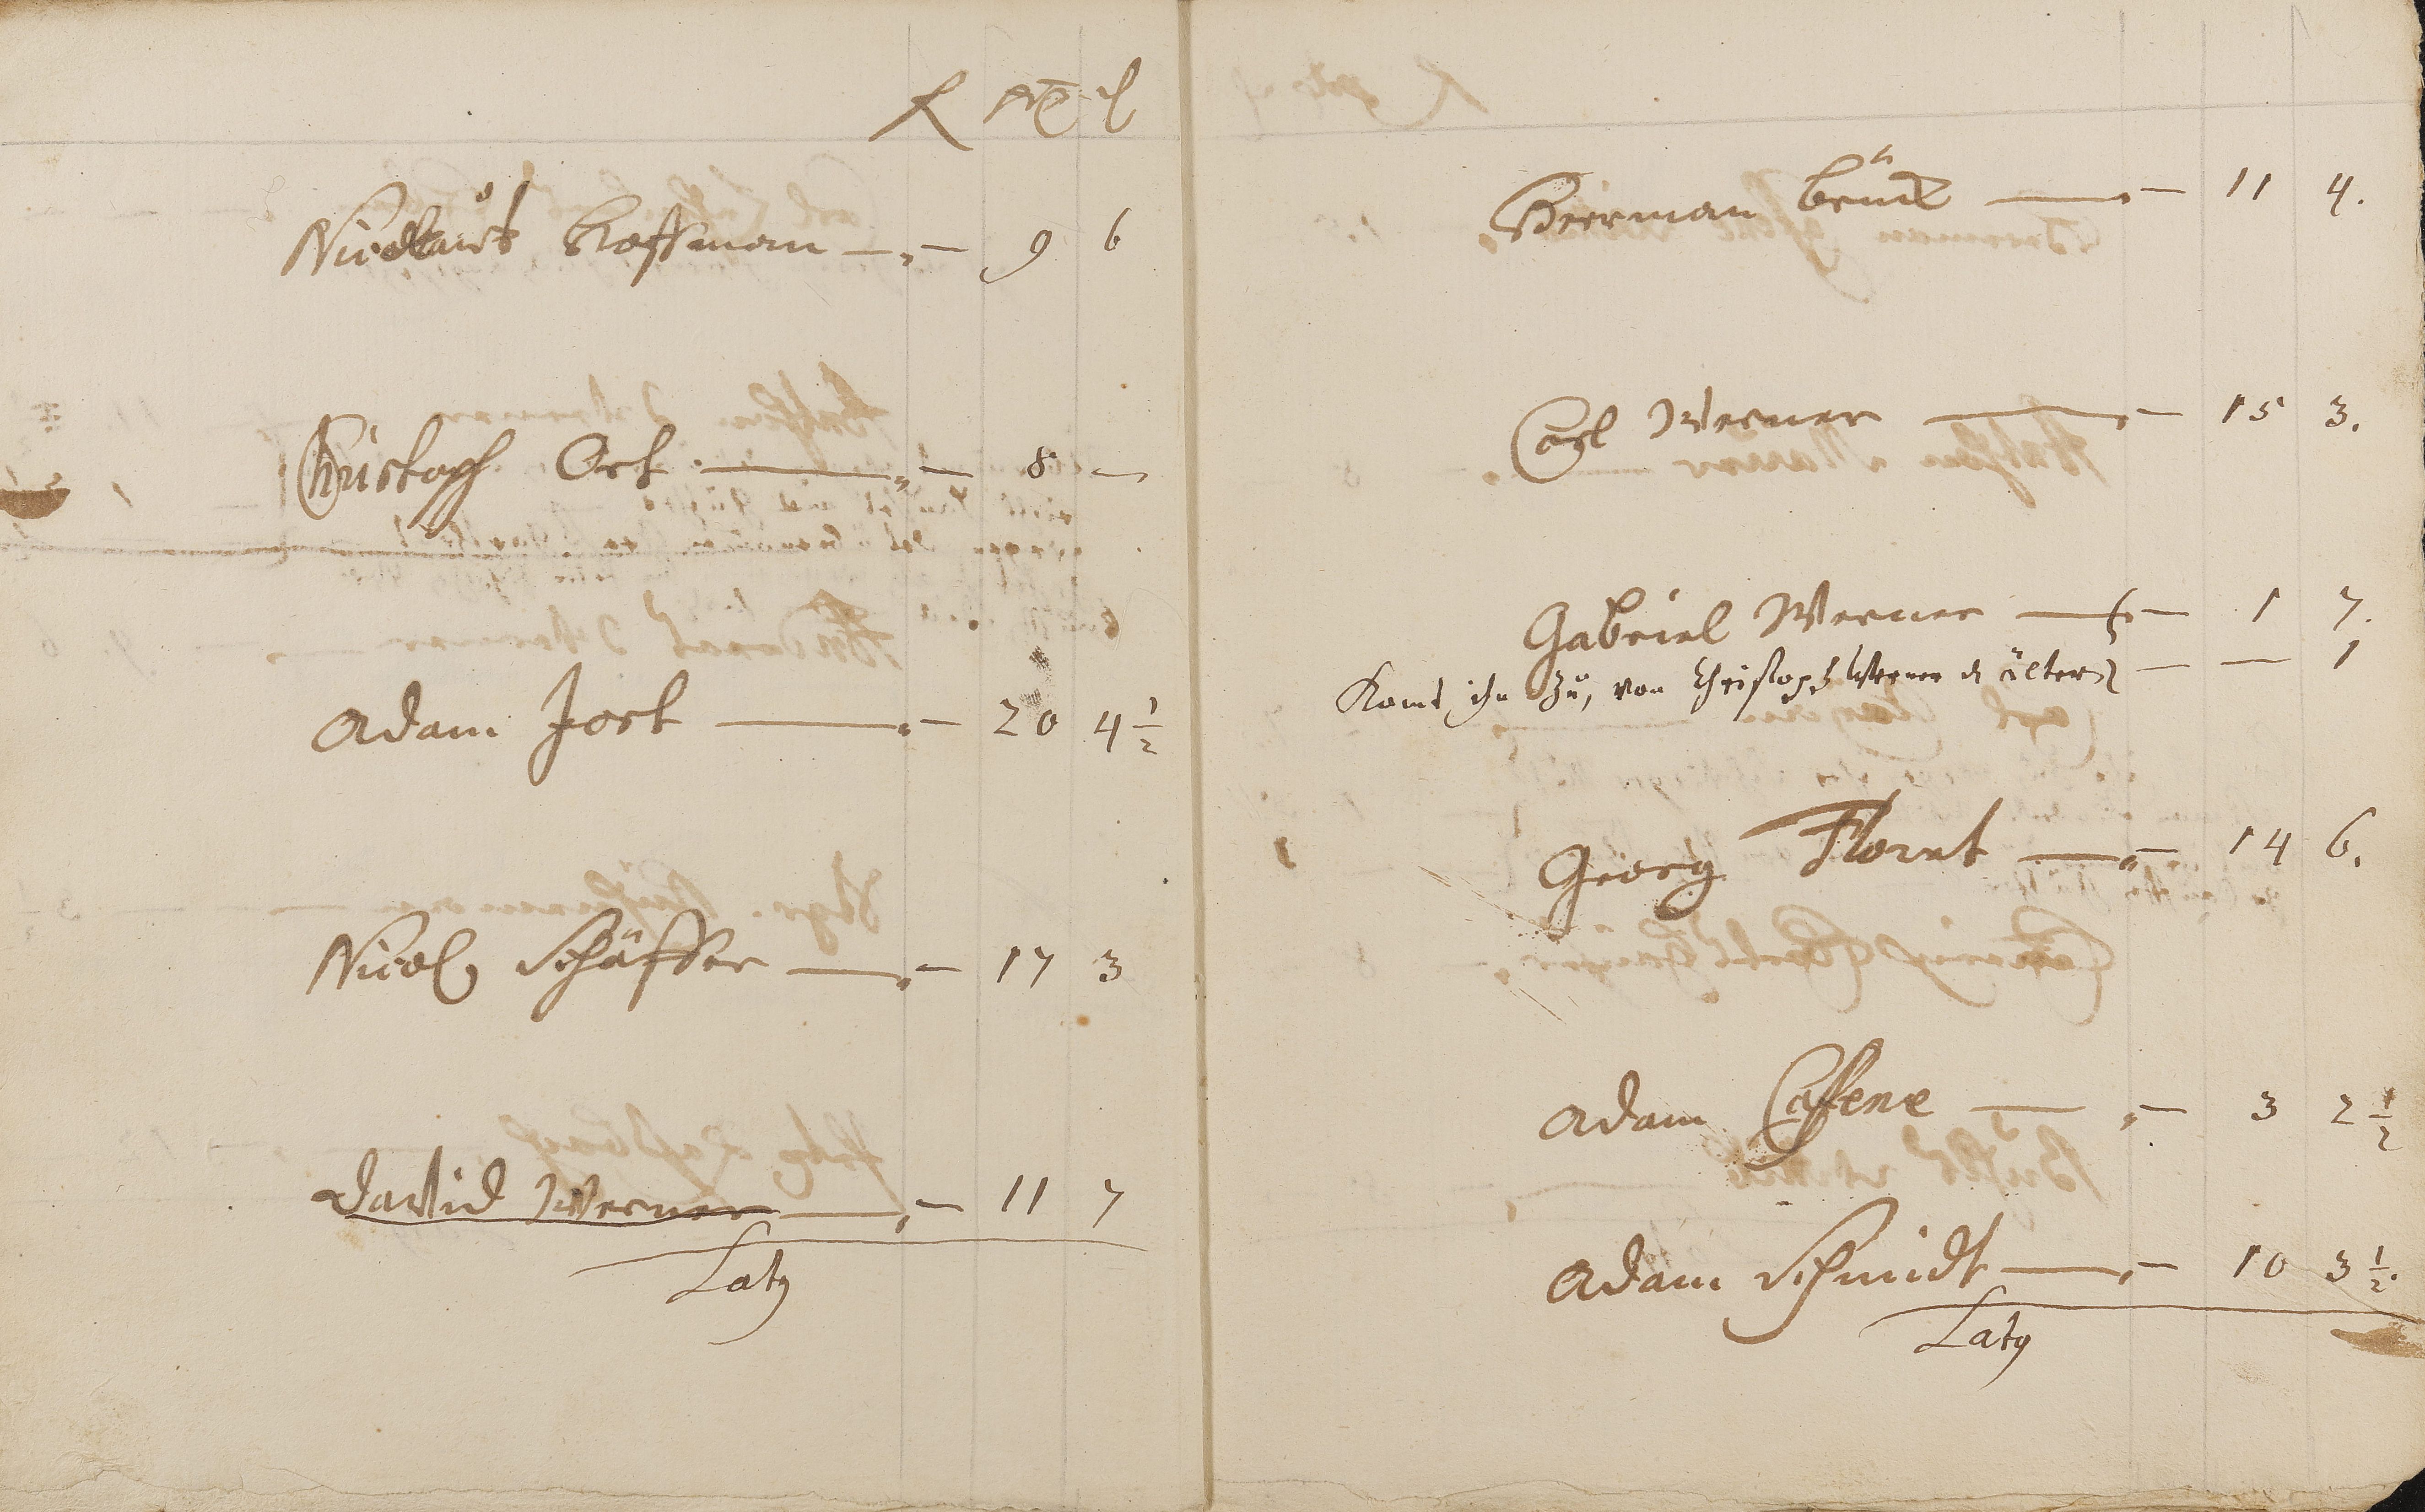 Nicolaus Hoffman — „ — 9 6
Christoph Ort — „ — 8 —
Adam Jost — „ — 20 4 1/2
Nicol Schäffer — „ — 17 3
David Werner — „ — 11 7
Latg
Herman — „ — 11 4.
Carl Werner — „ — 15 3.
Gabriel Werner — „ — 1 7.
Komt ihn zu, von Christoph Werner d älter — — 1
Georg Florut — „ — 14 6.
Adam — „ — 3 2 1/2
Adam Schmidt — „ — 10 3 1/2.
Latg